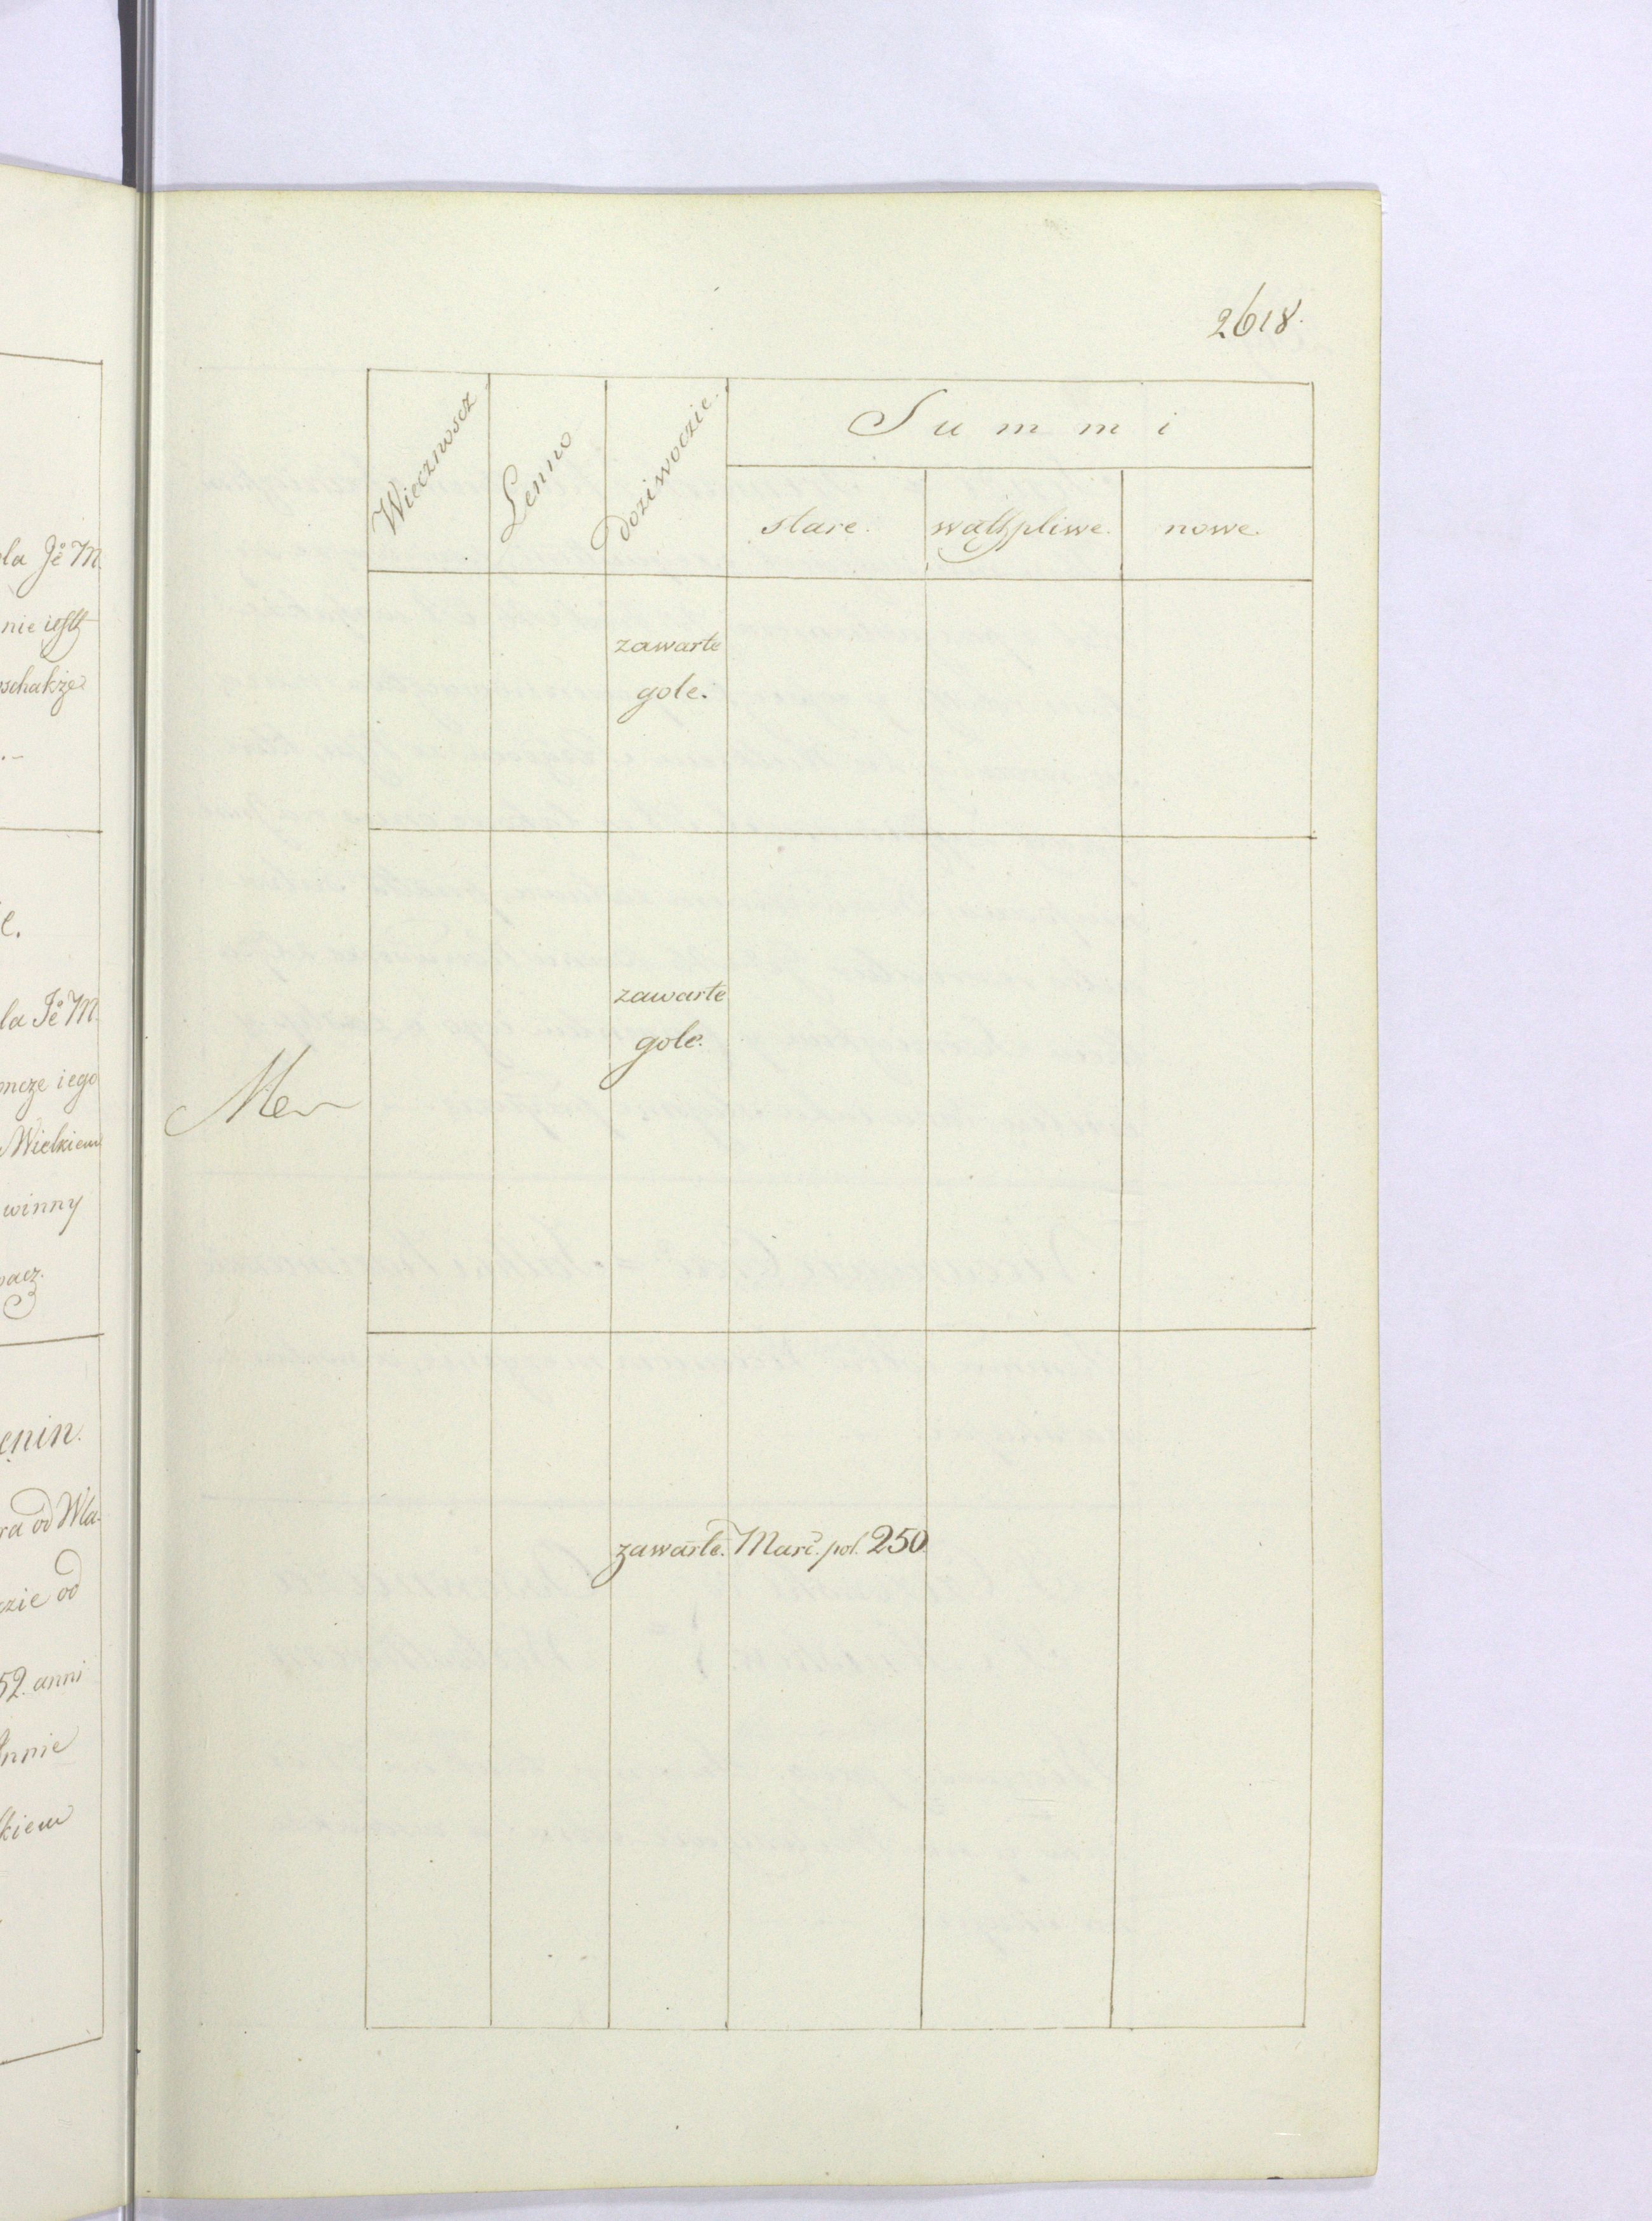 la Je M.
nie iestz
schakże
e.
la Je M.
mcze iego
Wielkiem
winny
pacz.
enin.
ra od Wla-
zie od
52. anni
Annie
kiem
2618.
Wiecznoscz
Lenno
Doziwoczie.
Summi
stare.
watspliwe.
nowe.
zawarte
gole.
zawarte
gole.
zawarte. Marc. pol. 250.